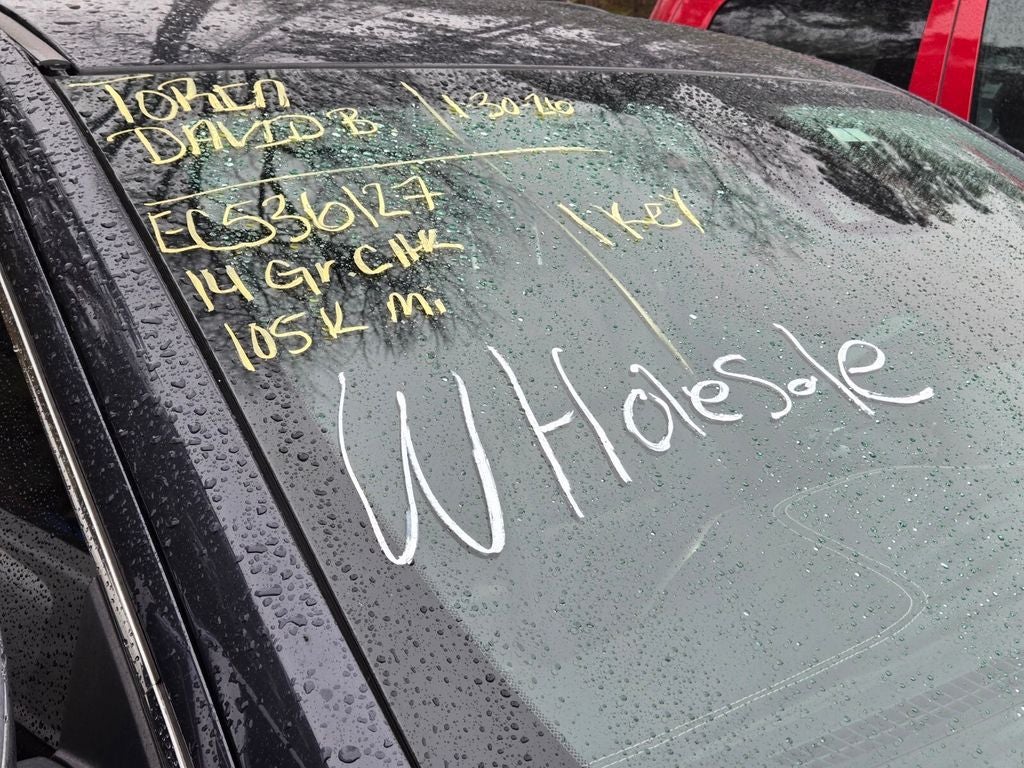 TOREN
DAVID B
1 30 26
EC536127
1 Key
14 Gr. CHK
105K Mi
WHolesale